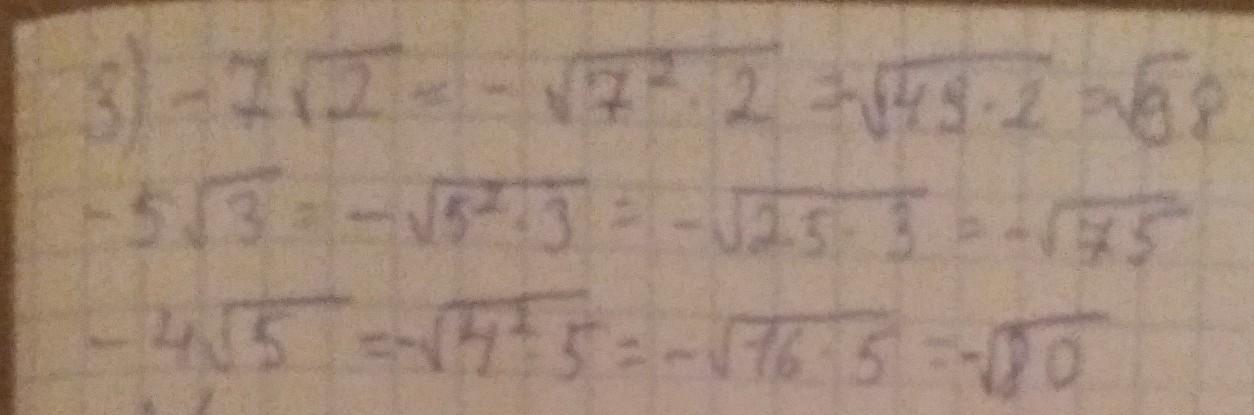 3) -7√2 = -√7²·2 = -√49·2 = -√98
-5√3 = -√5²·3 = -√25·3 = -√75
-4√5 = -√4²·5 = -√16·5 = -√80